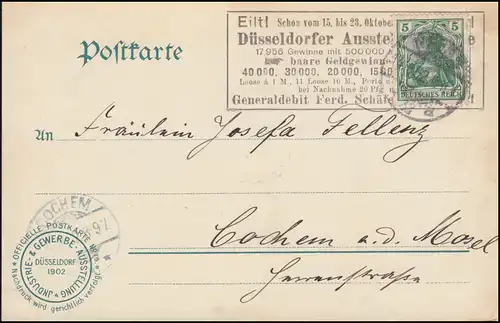 Postkarte
Eilt! Schon vom 15. bis 23. Oktobe
Düsseldorfer Ausstel
17956 Gewinne mit 500 000
baare Geldgewinne
40 000, 30 000, 20 000,
Loose à 1 M., 11 Loose 10 M., Porto
bei Nachnahme 20 Pfg
Generaldebit Ferd. Schäfe
5 5
DEUTSCHES REICH
An Fräulein Josefa Fellenz
Cochem a.d. Mosel
Herrenstraße
COCHEM
OFFICIELLE POSTKARTE
JNDUSTRIE- & GEWERBE-AUSSTELLUNG
DÜSSELDORF
1902
Nachdruck wird gerichtlich verfolgt